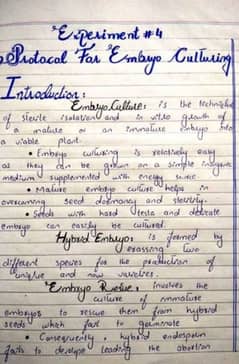 Experiment #4
Protocol For Embryo Culturing
Introduction:
Embryo Culture: is the technique
of sterile isolation and in vitro growth of
a mature or an immature embryo into
a viable plant.
• Embryo culturing is relatively easy
as they can be grown on a simple inorganic
medium supplemented with energy source
• Mature embryo culture helps in
overcoming seed dormancy and sterility.
• Seeds with hard testa and delicate
embryo can easily be cultured.
Hybrid Embryo: is formed by
crossing two
different species for the production of
unique and new varieties.
Embryo Rescue: involves the
culture of immature
embryos to rescue them from hybrid
seeds which fail to germinate
• Consequently, hybrid endosperm
fails to develope leading the abortion